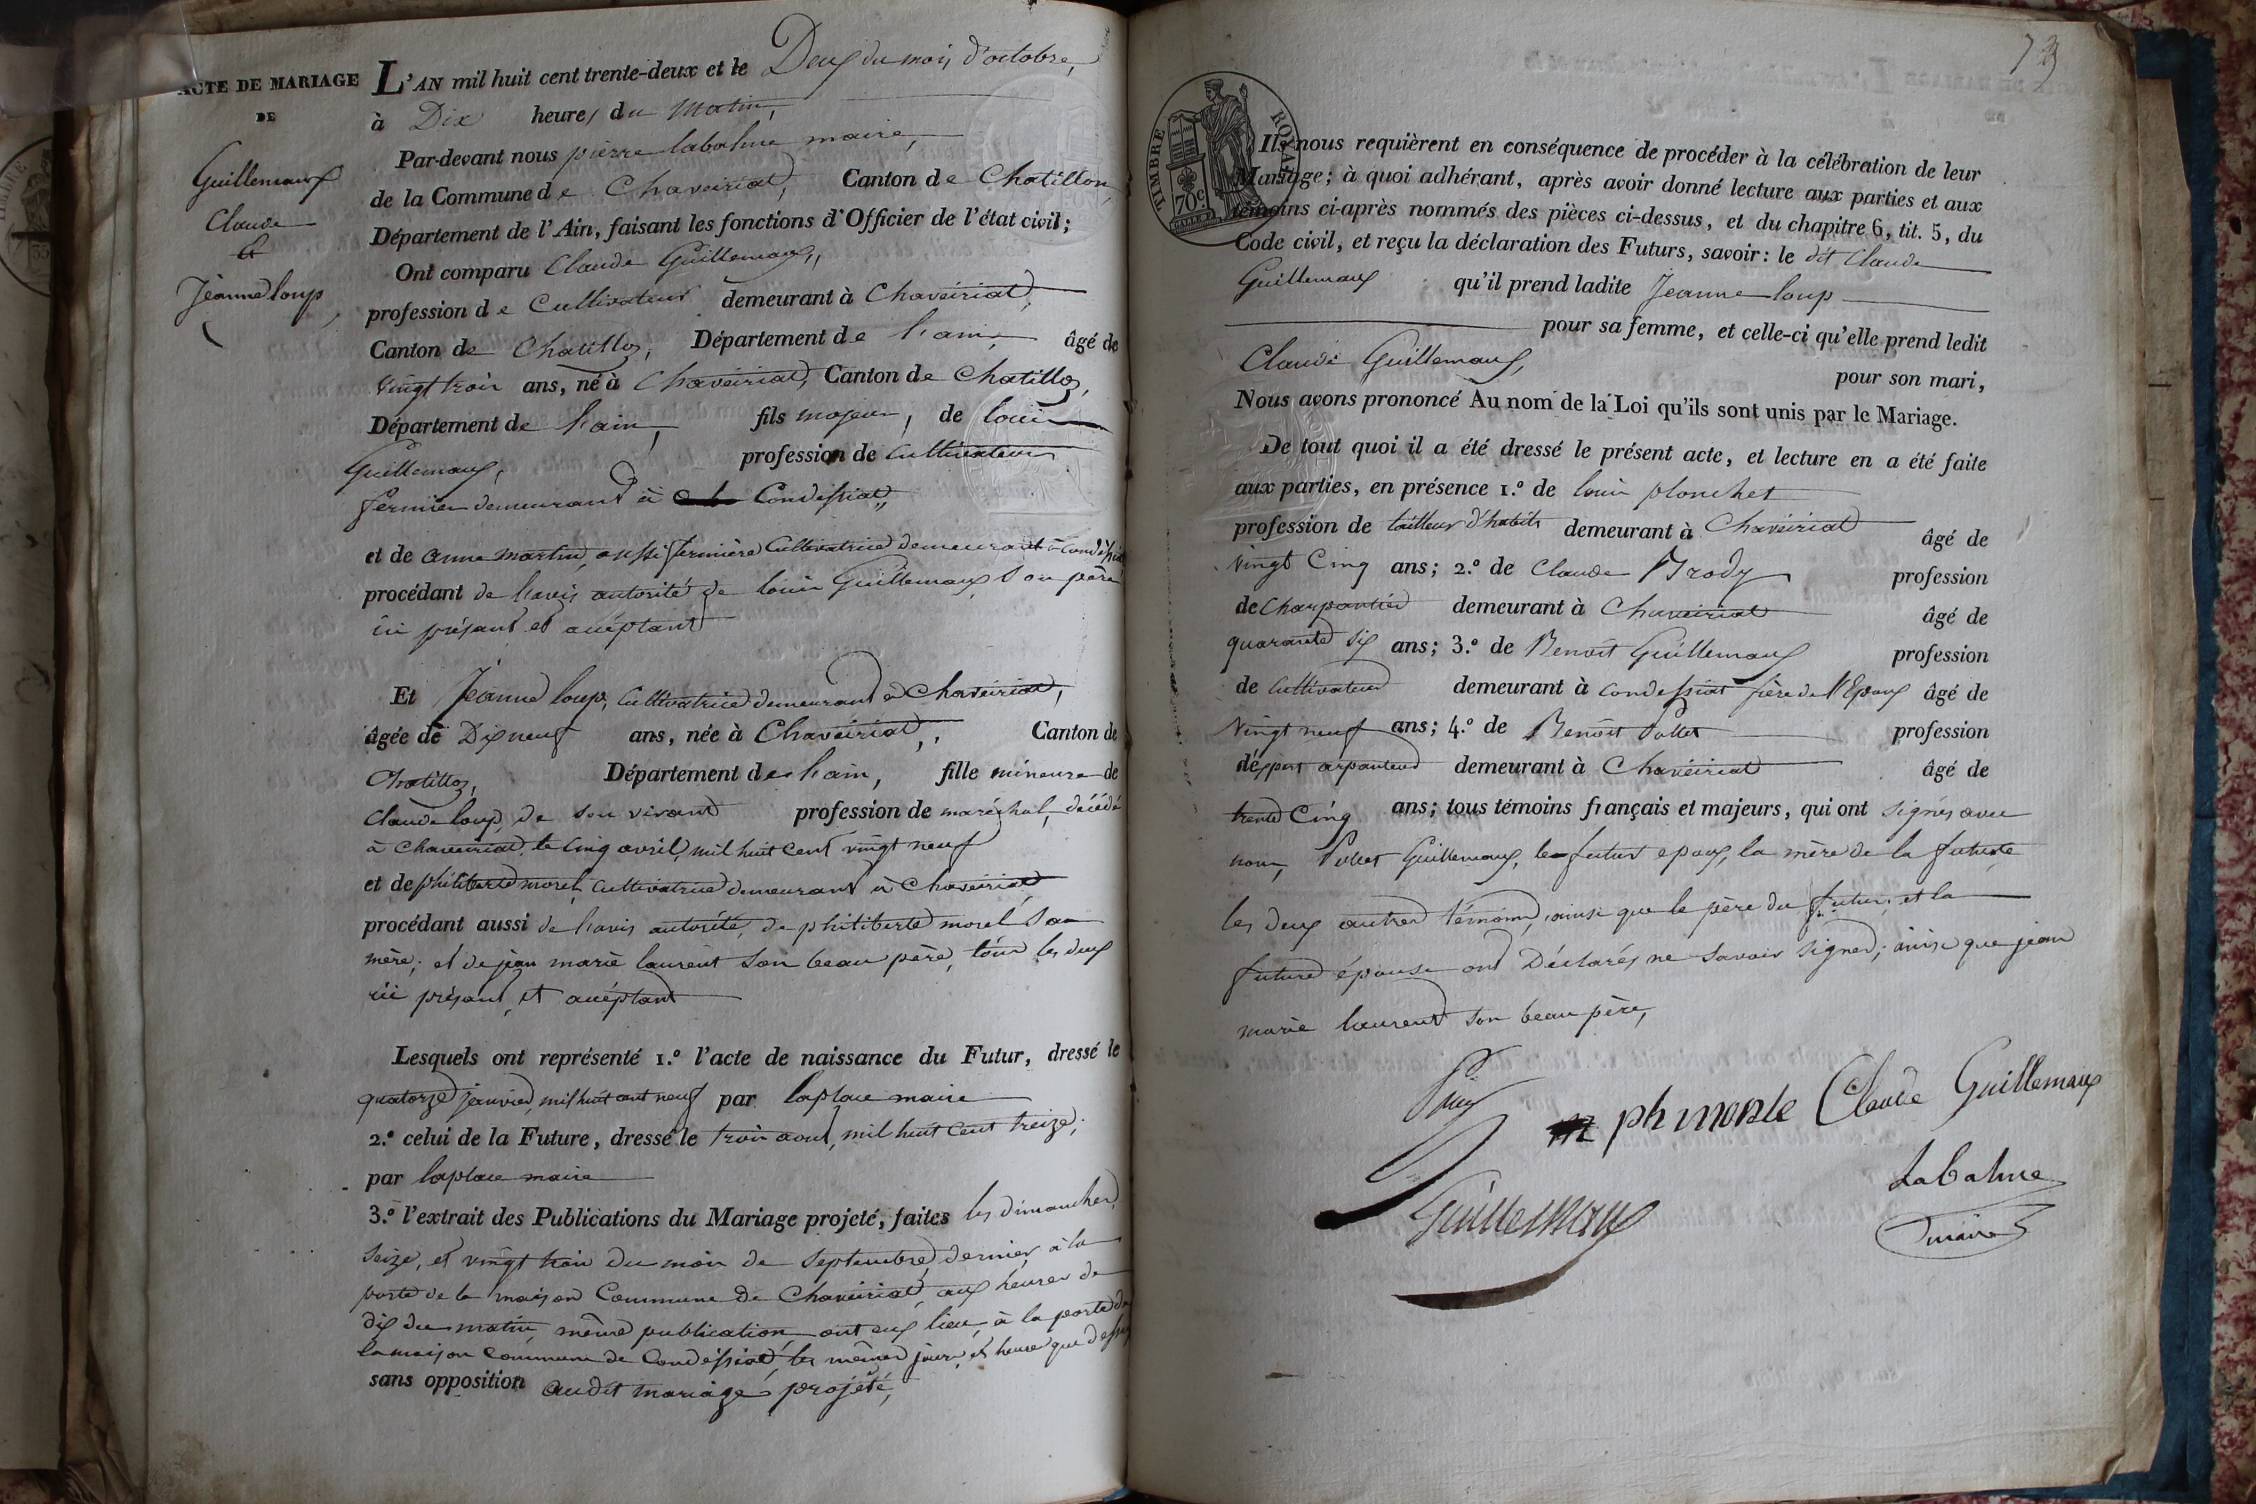 ACTE DE MARIAGE
DE
Guillemaux
Claude
&
Jeanne loup
L'AN mil huit cent trente-deux et le Deux du mois d'octobre,
à Dix heures du Matin,
Par-devant nous pierre labalme maire,
de la Commune de Chaveiriat, Canton de Chatillon,
Département de l'Ain, faisant les fonctions d'Officier de l'état civil;
Ont comparu Claude Guillemaux,
profession de Cultivateur demeurant à Chavéiriat,
Canton de Chatillon, Département de l'ain, âgé de
vingt trois ans, né à Chavéiriat, Canton de Chatillon,
Département de l'ain, fils majeur, de louis
Guillemaux, profession de Cultivateur
fermier demeurant à Condéssiat,
et de anne martin, aussi fermière Cultivatrice demeurant à Condéssiat
procédant de l'avis autorité de louis Guillemaux son père
ici présant et acéptant
Et Jeanne loup, Cultivatrice demeurant à Chavéiriat,
âgée de Dix neuf ans, née à Chavéiriat, Canton de
Chatillon, Département de l'ain, fille mineure de
Claude loup, de son vivant profession de maréchal, décédé
à Chaveiriat, le Cinq avril, mil huit cent vingt neuf
et de philiberte morel, Cultivatrice demeurant à Chavéiriat
procédant aussi de l'avis autorité, de philiberte morel sa
mère; et de jean marie laurent son beau père, tous les deux
ici présant, et acéptant
Lesquels ont représenté 1.º l'acte de naissance du Futur, dressé le
quatorze janvier, mil huit cent neuf par laplace maire
2.º celui de la Future, dressé le trois aout, mil huit cent treize;
par laplace maire
3.º l'extrait des Publications du Mariage projeté, faites les dimanches
seize, et vingt trois du mois de septembre, dernier, à la
porte de la maison Commune de Chavéiriat, aux heures de
dix du matin, même publication ont eux lieu, à la porte de
la maison commune de Condéssiat, les mêmes jours, et heure que dessus
sans opposition audit mariage projété,
73
TIMBRE ROYAL
70 c.
Ils nous requièrent en conséquence de procéder à la célébration de leur
Mariage; à quoi adhérant, après avoir donné lecture aux parties et aux
témoins ci-après nommés des pièces ci-dessus, et du chapitre 6, tit. 5, du
Code civil, et reçu la déclaration des Futurs, savoir: le dit Claude
Guillemaux qu'il prend ladite Jeanne loup
pour sa femme, et celle-ci qu'elle prend ledit
Claude Guillemaux, pour son mari,
Nous avons prononcé Au nom de la Loi qu'ils sont unis par le Mariage.
De tout quoi il a été dressé le présent acte, et lecture en a été faite
aux parties, en présence 1.º de louis planchet
profession de tailleur d'habits demeurant à Chavéiriat âgé de
vingt Cinq ans; 2.º de Claude Brody profession
de Charpantier demeurant à Chaveiriat âgé de
quarante six ans; 3.º de Benoit Guillemaux profession
de Cultivateur demeurant à condéssiat frère de l'Epoux âgé de
vingt neuf ans; 4.º de Benoit Pollet profession
d'éxpert arpanteur demeurant à Chavéiriat âgé de
trente Cinq ans; tous témoins français et majeurs, qui ont signés avec
nous, Pollet Guillemaux, le futur epoux, la mère de la future
les deux autres témoins, ainsi que le père du futur, et la
future épouse ont Déclarés ne savoir signer; ainsi que jean
marie laurent son beau père,
ph morele Claude Guillemaux
Labalme
Guillemaux
maire